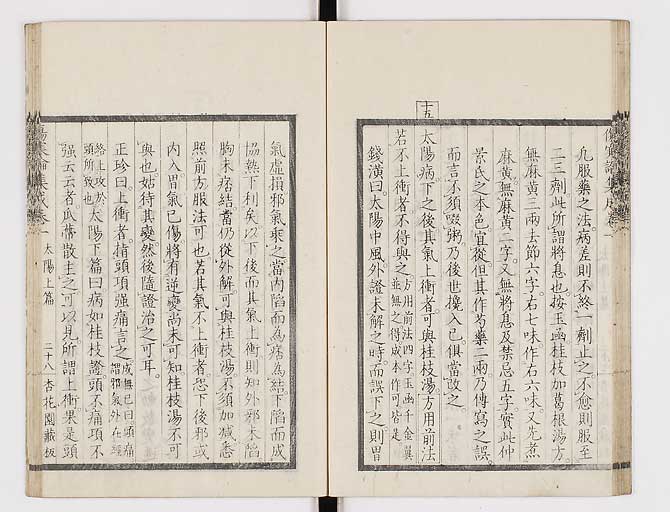 傷寒論集成卷一
凡服藥之法。病差則不終一劑止之。不愈則服至
二三劑。此所謂將息也。按玉函桂枝加葛根湯方。
無麻黃三兩去節六字。右七味作右六味。又先煮
麻黃無麻黃二字。又無將息及禁忌五字。實此仲
景氏之本色。宜從。但其作芍藥二兩。乃傳寫之誤。
而言不須啜粥。乃後世攙入已。俱當改之。
十五
太陽病。下之後。其氣上衝者。可與桂枝湯。方用前法
若不上衝者。不得與之
方用前法四字。玉函千金翼
並無之。得成本作可。皆是
錢潢曰。太陽中風。外證未解之時。而誤下之。則胃
氣虛損。邪氣乘之。當內陷而為痞為結。下陷而成
協熱下利矣。以下後而其氣上衝。則知外邪未陷
胸。未痞結。當仍從外解。可與桂枝湯。不須加減。悉
照前方服法可也。若其氣不上衝者。恐下後邪或
內入胃氣已傷。將有逆變。尚未可知。桂枝湯不可
與也。姑待其變。然後隨證治之可耳。
正珍曰。上衝者。指頭項強痛言之。
成無已曰。頭痛
謂邪氣外在經
絡上攻於
頭所致也
太陽下篇曰。病如桂枝證。頭不痛。項不
強云云者。瓜蔕散主之。可以見所謂上衝。果是頭
傷寒論集成卷一
太陽上篇
二十八
杏花園藏板